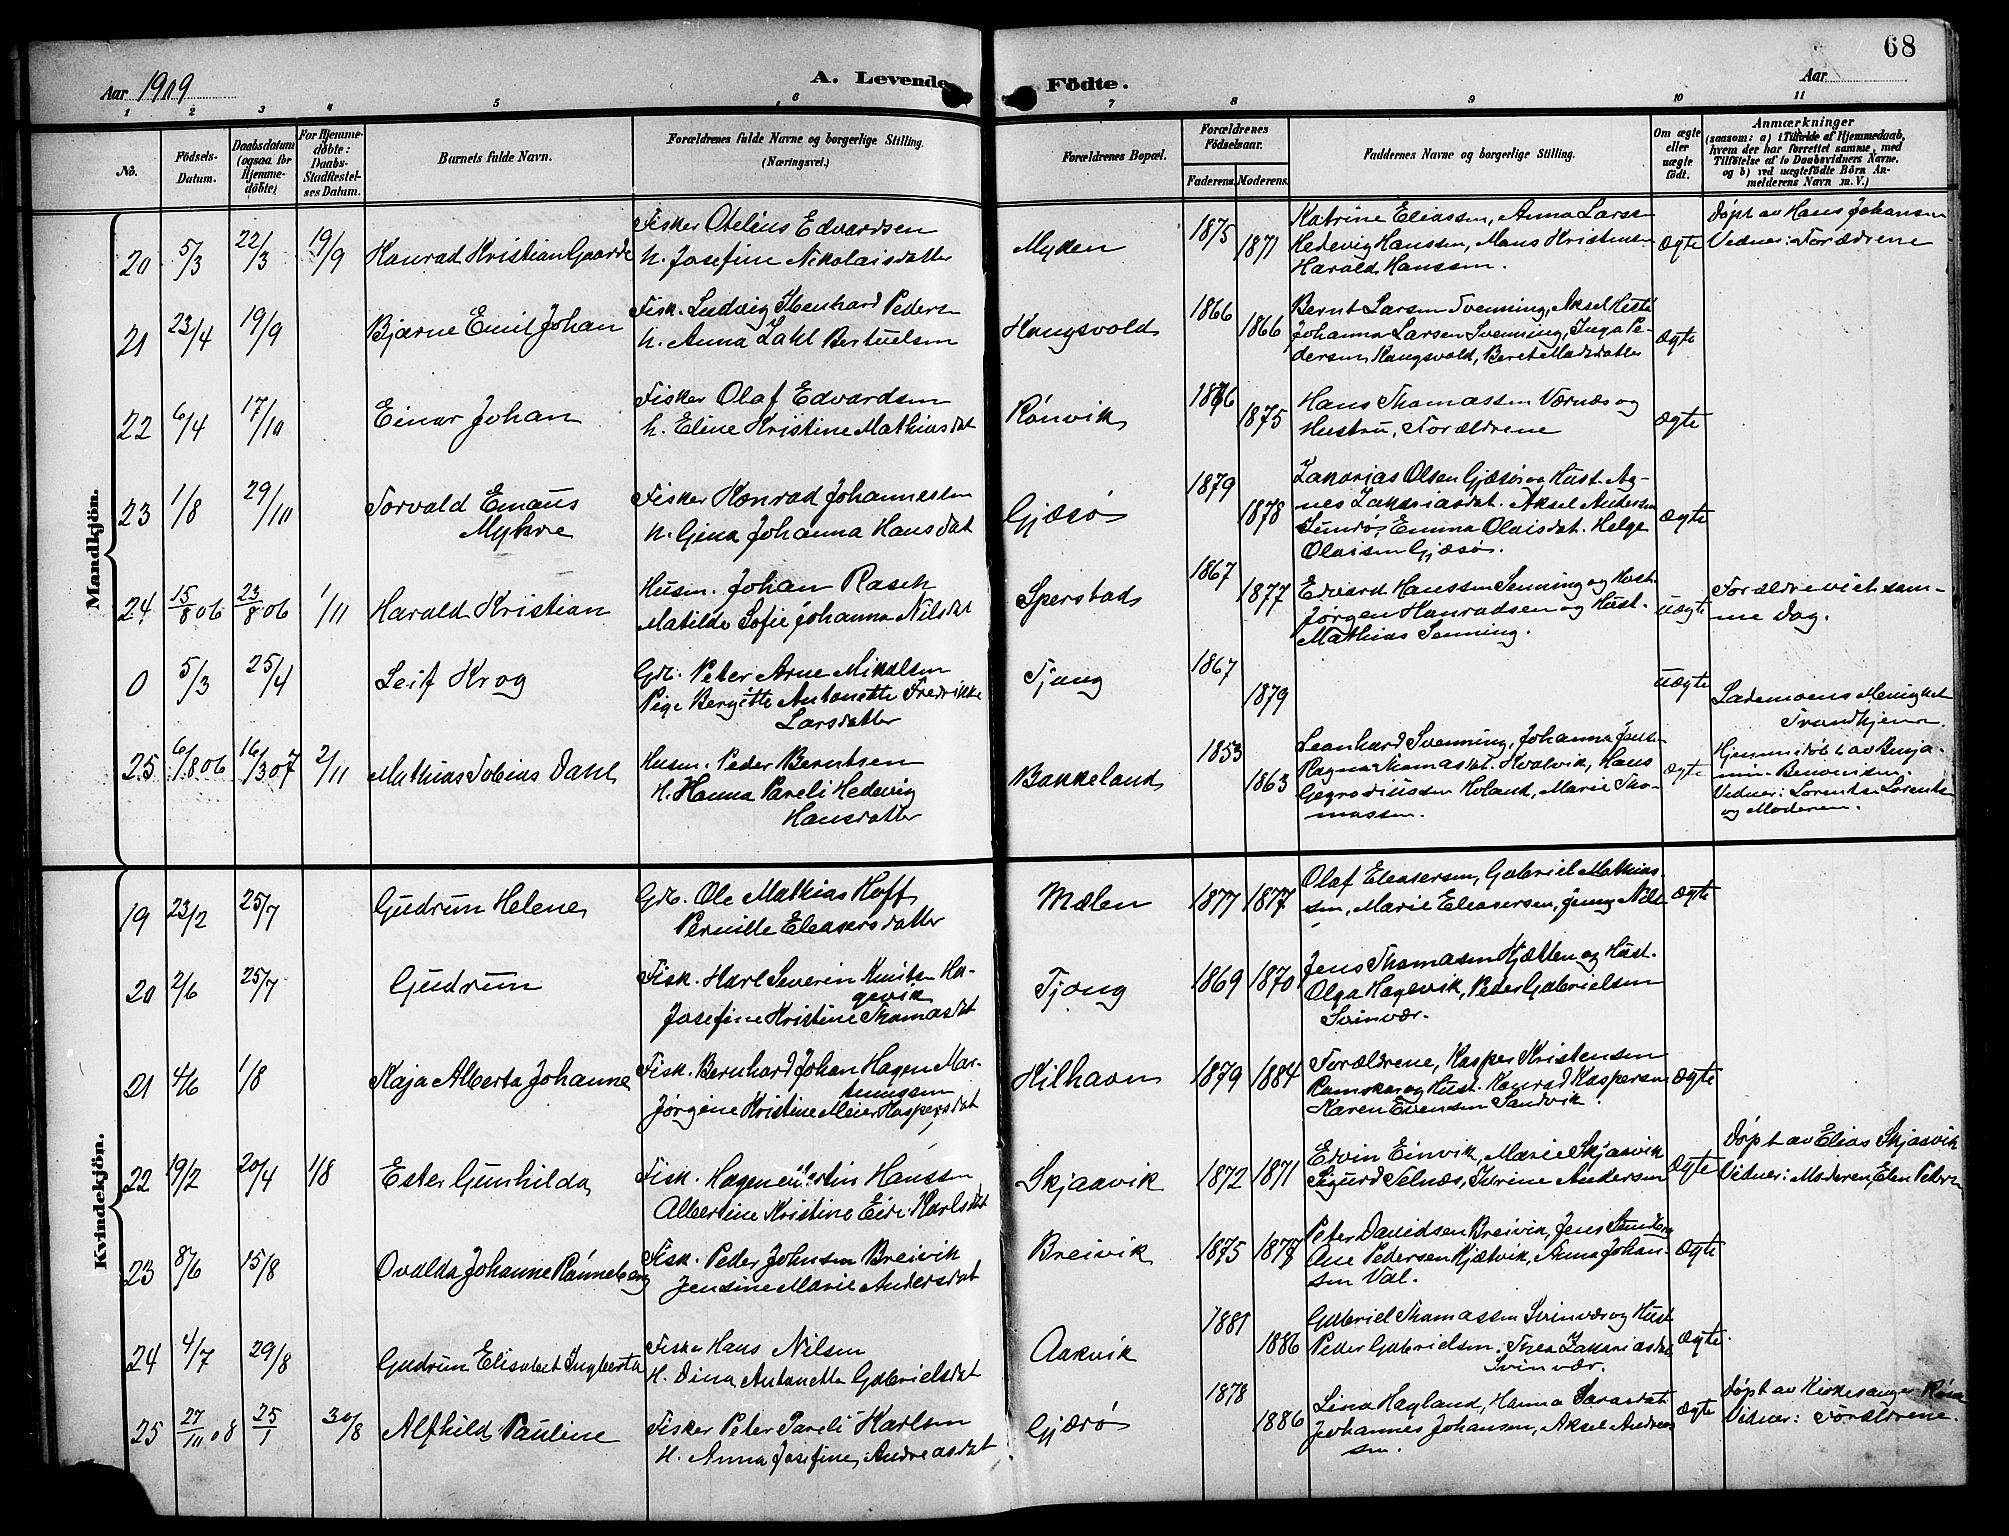 68
Aar 1909
A. Levende Födte.
Aar
1 2 3 4 5 6 7 8 9 10 11
No.
Födsels-Datum.
Daabsdatum (ogsaa for Hjemmedöbte)
For Hjemmedöbte: Daabs-Stadfestelses Datum.
Barnets fulde Navn.
Forældrenes fulde Navne og borgerlige Stilling.
(Næringsvei.)
Forældrenes Bopæl.
Forældrenes Födselsaar.
Faderens. Moderens.
Faddernes Navne og borgerlige Stilling.
Om ægte eller uægte födt.
Anmærkninger
(saasom: a) i Tilfælde af Hjemmedaab, hvem der har forrettet samme, med Tilföielse af to Daabsvidners Navne, og b) ved uægtefödte Börn Anmelderens Navn m. V.)
Mandkjön.
20 5/3 22/3 19/9 Konrad Kristian Gaarde
Fisker Otelius Edvardsen
h. Josefine Nikolaisdatter
Myken 1875 1871
Katrine Eliassen, Anna Larse
Hedevig Hanssen, Mons Kristense
Harald Hanssen.
ægte
Døpt av Hans Johansen
Vidner: Forældrene
21 23/4 19/9 Bjarne Emil Johan
Fisk. Ludvig Ibenhard Peders
h. Anna Zahl Bertuelsen
Kongsvold 1866 1866
Bernt Larsen Svenning, Aksel
Johanna Larsen Svenning, Inga Pe-
dersen Kongsvold, Beret Madsdatter
ægte
22 6/4 17/10 Einar Johan
Fisker Olaf Edvardsen
h. Eline Kristine Mathiasdat
Rønvik 1876 1875
Hans Thomassen Værnæs og
Hustru, Forældrene
ægte
23 1/8 29/10 Torvald Emaus
Myhre
Fisker Konrad Johannessen
h. Gina Johanna Hansdat
Gjæsø 1879 1878
Zakarias Olsen Gjæsø og Hust. Ag-
nes Zakariasdat. Aksel Andersen
Sundø, Emma Olaisdat. Helge
Olaisen Gjæsø.
ægte
24 15/8 06 23/8 06 1/11 Harald Kristian
Husm. Johan Rasch
Matilde Sofie Johanna Nilsdat
Sperstad 1867 1877
Edvard Hanssen Senning og Hust.
Jørgen Konradsen og Hust.
Mathias Senning.
uægte
Forældre viet sam-
me Dag.
0 5/3 25/4 Leif Krog
Gdb. Peter Arne Mikalsen
Pige Bergitte Antonette Fredrikke
Larsdatter
Tjong 1867 1879
uægte
Lademoens Menighet
Trondhjem.
25 6/8 06 16/3 07 2/11 Mathias Tobias Dahl
Husm. Peder Berntsen
H. Hanna Pareli Hedevig
Hansdatter
Bakkeland 1853 1863
Leonhard Svenning, Johanna Jens
Ragna Thomasdat. Kvalvik, Hans
Holand, Marie Tho-
massen.
ægte
Hjemmedøbt av Benja-
min
Vidner: Lorents Lorents
og Moderen.
Kvindekjön.
19 23/2 25/7 Gudrun Helene
Gdb. Ole Mathias Hoff
Pernille Eleasersdatter
Mælen 1877 1877
Olaf Eleasersen, Gabriel Mathias-
sen, Marie Eleasersen, Jenny Nils
ægte
20 2/6 25/7 Gudrun
Fisk. Karl Severin Knutsen Ha-
gevik
Josefine Kristine Thomasdat
Tjong 1869 1870
Jens Thomassen Kjætten og Hust.
Olga Hagevik, Peder Gabrielsen
Svinvær.
21 4/6 1/8 Kaja Alberta Johanne
Fisk. Bernhard Johan Hagen Mar-
tinussen
Jørgine Kristine Meier Kaspersdat
Kilhavn 1879 1884
Forældrene, Kasper Kristensen
Ramskar og Hust. Konrad Kaspersen
Karen Evensen Sandvik.
ægte
22 19/2 20/4 1/8 Ester Gunhilda
Fisk. Hagen Martin Hanssen
Albertine Kristine Karlsdat
Skjaavik 1872 1871
Edvin Einvik, Marie Skjaavik
Sigurd Selnæs, Andersen
ægte
Døpt av Elias Skjaavik
Vidner: Moderen, Elen Peters
23 8/6 15/8 Ovalda Johanne Rønneberg
Fisk. Peder Johnsen Breivik
Jensine Marie Andersdat
Breivik 1875 1877
Peter Davidsen Breivik, Jens
Ane Pedersen Kjælvik, Anna Johan-
sen Val.
ægte
24 4/7 29/8 Gudrun Elisabet Ingberta
Fisker Hans Nilsen
H. Dina Antonette Gabrielsdat
Aakvik 1881 1886
Gabriel Thomassen Svinvær og Hust
Peder Gabrielsen, Thea Zakariasdat
Svinvær.
ægte
25 27/11 08 25/1 30/8 Alfhild Pauline
Fisker Peter Pareli Karlsen
H. Anna Josefine Andreasdat
Gjærø 1878 1886
Lina Hagland, Hanna
Johannes Johansen, Aksel Andreas
sen.
ægte
Døpt av Kirkesanger
Vidner: Forældrene.